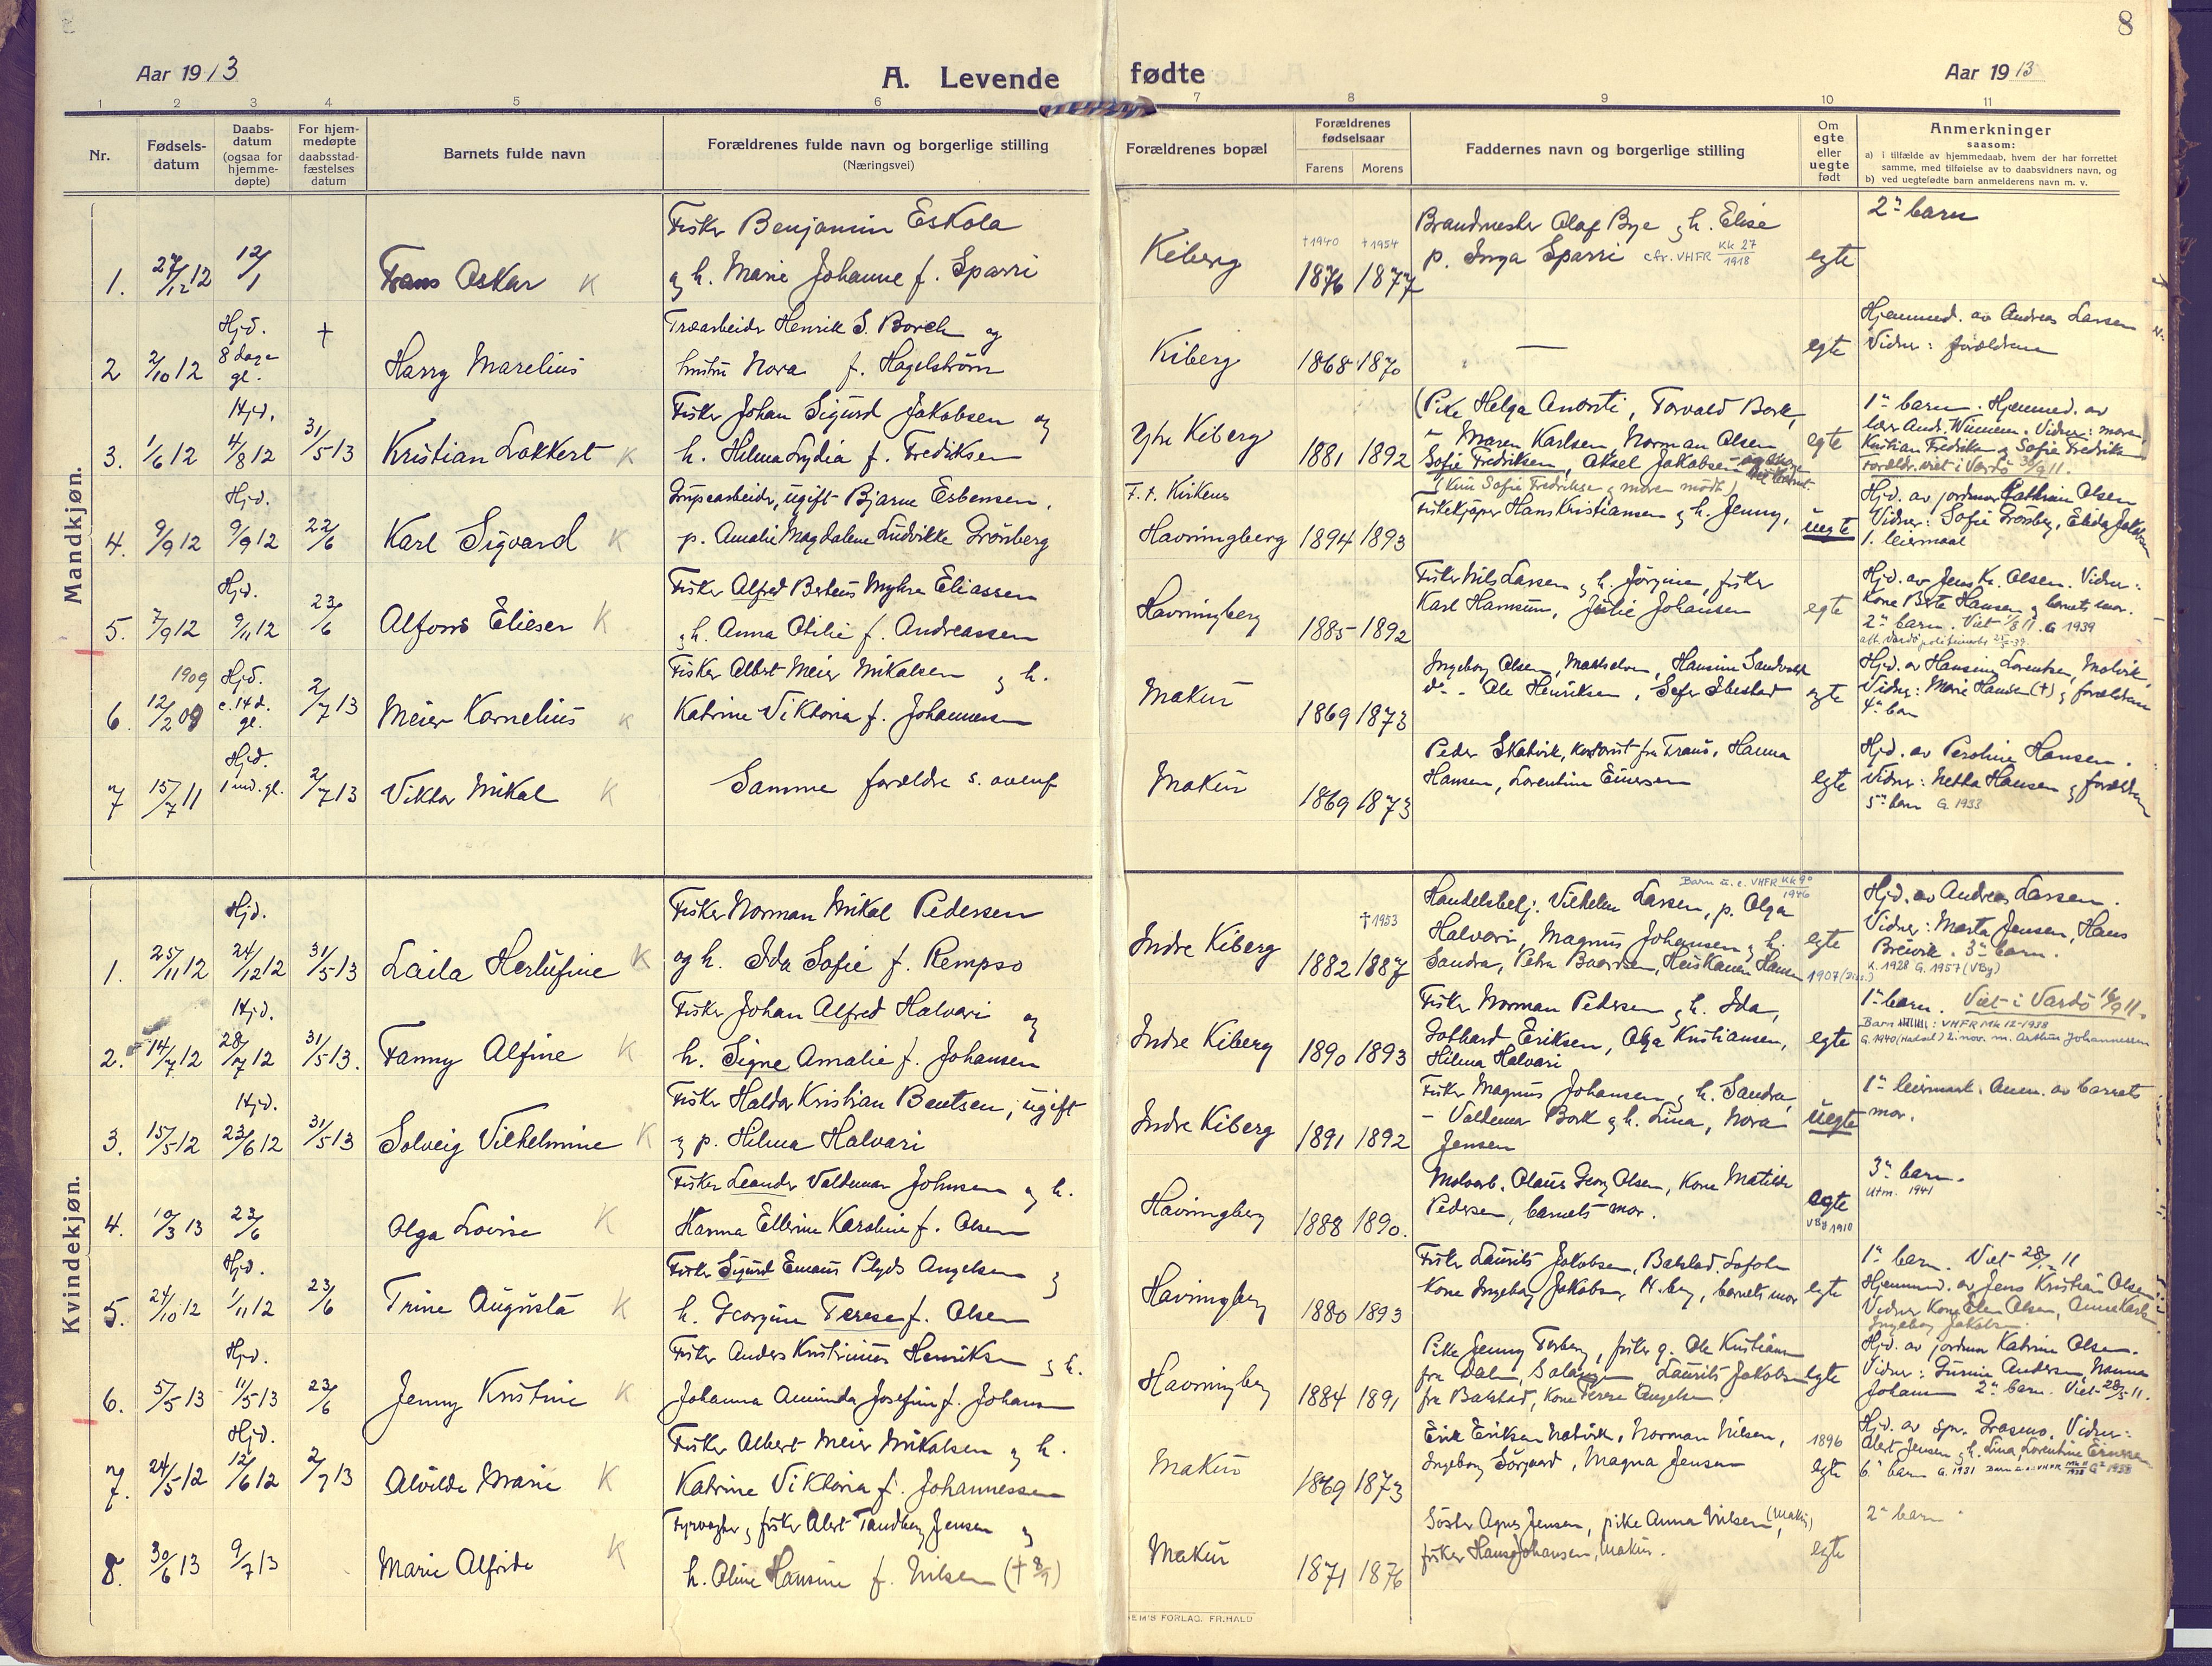 8
Aar 1913
A. Levende fødte
Aar 1913
1 2 3 4 5 6 7 8 9 10 11
Nr.
Fødsels-
datum
Daabs-
datum
(ogsaa for
hjemme-
døpte)
For hjem-
medøpte
daabsstad-
fæstelses
datum
Barnets fulde navn
Forældrenes fulde navn og borgerlige stilling
(Næringsvei)
Forældrenes bopæl
Forældrenes
fødselsaar
Farens Morens
Faddernes navn og borgerlige stilling
Om
egte
eller
uegte
født
Anmerkninger
saasom:
a) i tilfælde av hjemmedaab, hvem der har forrettet
samme, med tilføielse av to daabsvidners navn, og
b) ved uegtefødte barn anmelderens navn m. v.
Mandkjøn.
1. 27/12 12
12/1
Frans Oskar K
Fisker Benjamin Eskola
og h. Marie Johanne f. Sparri
Kiberg
†1940 †1954
1876 1877
Brandmester Olaf Bye og h. Elise
p. Inga Sparri cfr. VHFR Kk 27 1918
egte
2n barn
2 2/10 12
Hjd.
8 dage
gl.
†
Harry Marelius
Træarbeider Henrik S. Borch og
hustru Nora f. Hagelstrøm
Kiberg
1868 1870
—
egte
Hjemmed. av Andreas Larsen
Vidner: forældrene
3. 1/6 12
Hjd.
4/8 12
31/5 13
Kristian Lokkert K
Fisker Johan Sigurd Jakobsen og
h. Hilma Lydia f. Fredriksen
Ytre Kiberg
1881 1892
(Pike Helga Anorsti, Torvald Bork,
" Maren Karlsen, Norman Olsen
Sofie Fredriksen, Aksel Jakobsen
(Kun Sofie Fredriksen og moren mødt)
egte
1n barn. Hjemmed. av
lærer And. Vidner: moren,
Kristian Fredriksen og Sofie Fredriksen
Forældr. viet i Vardø 30/9 11.
4. 9/9 12
Hjd.
9/9 12
22/6
Karl Sigvard K
Grubearbeider, ugift Bjarne Esbensen,
p. Amalie Magdalene Ludvikke Grönberg
F. t. Kirkenes
Havningberg
1894 1893
Fiskekjøper Hans Kristiansen og h. Jenny,
uegte
Hjd. av jordmor Cathrine Olsen
Vidner: Sofie Grönberg, Elida
1. leiermaal
5. 7/9 12
Hjd.
9/11 12
23/6
Alfons Elieser K
Fisker Alfred Berteus Myhre Eliassen
og h. Anna Otilie f. Andreassen
Havningberg
1885 1892
Fisker Nils Larsen og h. Jörgine, fisker
Karl Hamsun, Julie Johansen
egte
Hjd. av Jens Kr. Olsen. Vidner:
Kone Berte Hansen og barnets mor.
2n barn. G 1939
6. 1909
12/2 09
Hjd.
c. 14 d.
gl.
2/7 13
Meier Kornelius K
Fisker Albert Meier Mikalsen og h.
Katrine Viktoria f. Johannessen
Makur
1869 1873
Ingeborg Olsen, Maalselven, Hansine Sandvold
do - Ole Henriksen, Ibestad
egte
Hjd. av Hansine Lorentsen, Molvik,
Vidner: Marie Hansen (†) og forældrene
4n barn
7 15/7 11
Hjd.
1 md. gl.
2/7 13
Viktor Mikal K
Samme forældre s. ovenf
Makur
1869 1873
Peder Skatvik, fra Tranö, Hanna
Hansen, Lorentine Einersen
egte
Hjd. av Peroline Hansen.
Vidner: Netta Hansen og forældrene
5n barn G. 1933
Kvindekjøn.
1. 25/11 12
Hjd.
24/12 12
31/5 13
Laila Herlufine K
Fisker Norman Mikal Pedersen
og h. Ida Sofie f. Rempso
Indre Kiberg
†1953
1882 1887
Barn u. e. VHFR Kk 90 1946
Handelsbetj. Vilhelm Larsen, p. Olga
Halvari, Magnus Johansen og h.
Sandra, Petra Baardsen, Heiskanen Hansen
egte
1907
Hjd. av Andreas Larsen.
Vidner: Marta Jensen, Hans
Breivik. 3n barn.
K. 1928 G. 1957 (VBy)
2. 14/7 12
Hjd.
28/7 12
31/5 13.
Fanny Alfine K
Fisker Johan Alfred Halvari og
h. Signe Amalie f. Johansen
Indre Kiberg
1890 1893
Fisker Norman Pedersen og h. Ida,
Gothard Eriksen, Olga Kristiansen,
Hilma Halvari
egte
1n barn. Viet i Vardö 16/9 11.
Barn : VHFR Mk 12-1938
G. 1940 2. nov. m. Arthur Johannessen
3. 15/5 12
Hjd.
23/6 12
31/5 13
Solveig Vilhelmine K
Fisker Haldor Kristian Bentsen, ugift
og p. Hilma Halvari
Indre Kiberg
1891 1892
Fisker Magnus Johansen og h. Sandra,
- Valdemar Bork og h. Lina, Nora
Jensen
uegte
1n leiermaal. Anm. av barnets
mor.
4. 10/3 13
23/6
Olga Lovise K
Fisker Leander Valdemar Johnsen og h.
Hanna Ellerine Karoline f. Olsen
Havningberg
1888 1890.
Molvarb. Olaus Georg Olsen, Kone Matilde
Pedersen, barnets mor.
egte
VBy 1910
3n barn.
Utm. 1941
5. 24/10 12
Hjd.
1/11 12
23/6
Trine Augusta K
Fisker Sigurd Emaus Angelsen og
h. Georgine Terese f. Olsen
Havningberg
1880 1893
Fisker Laurits Jakobsen, Balstad, Lofoten
Kone Ingeborg Jakobsen, H.berg, barnets mor
egte
1n barn. Viet 28/12 11
Hjemmed. av Jens Kristian Olsen
Vidner Kone Olsen,
Ingeborg Jakobsen.
6. 5/5 13
Hjd.
11/5 13
23/6
Jenny Kristine K
Fisker Anders Kristinius Henriksen og h.
Johanna Aminda Josefine f. Johansen
Havningberg
1884 1891
Pike Jenny Torberg, fisker g. Ole Kristiansen
fra Dalen, Salangen Laurits Jakobsen
fra Balstad, Kone Terese Angelsen.
egte
Hjd. av jordmor Katrine Olsen.
Vidner: Gurine Andersen, Nanna
Johansen 2n barn. Viet 28/5 11.
7. 24/5 12
Hjd.
12/6 12
2/7 13
Alvilde Marie K
Fisker Albert Meier Mikalsen og h.
Katrine Viktoria f. Johannessen
Makur
1869 1873
Erik Eriksen Natvik, Norman Nilsen,
Ingeborg Sörgaard, Magna Jensen
1896
egte
Hjd. av Vidner:
Alert Jensen og h. Lina, Lorentine Einersen
6n barn G. 1931
8. 30/6 13
9/7 13
Marie Alfride K
Fyrvogter og fisker Alert Tandberg Jensen og
h. Oline Hansine f. Nilsen († 8/9)
Makur
1871 1876
Söster Agnes Jensen, pike Anna Nilsen (Makur),
fisker Hans Johansen, Makur.
egte
2n barn
EM'S FORLAG. FR.HALD